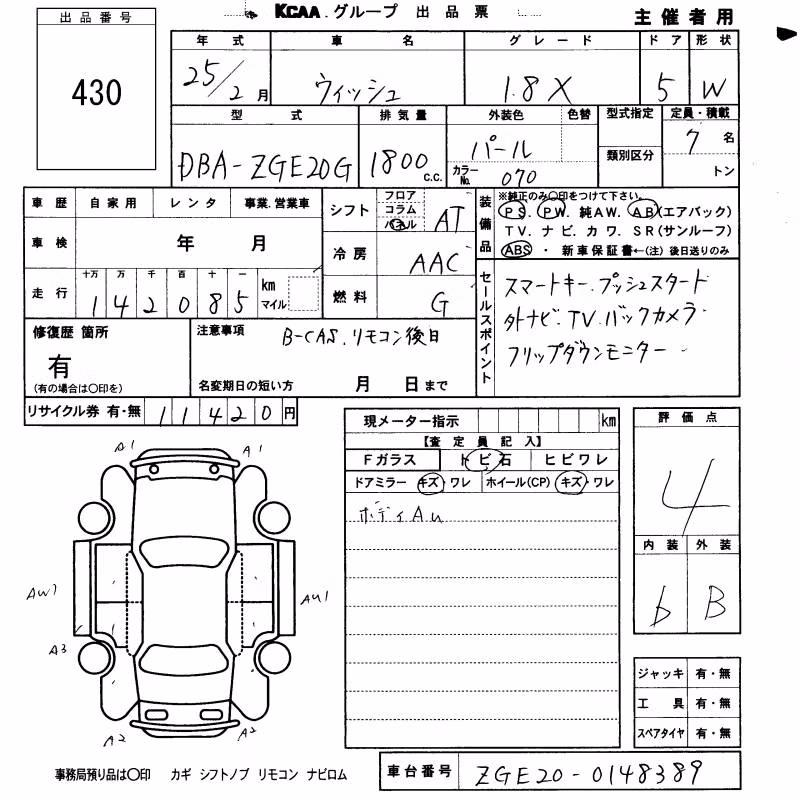 KCAA.グループ 出品票
主催者用
出品番号
430
年式 車名 グレード ドア 形状
25/2月 ウィッシュ 1.8X 5 W
型式 排気量 外装色 色替 型式指定 定員・積載
DBA-ZGE20G 1800 c.c. パール 7名
カラーNo. 070 類別区分 トン
車歴 自家用 レンタ 事業.営業車
車検 年 月
走行 十万 万 千 百 十 一
142085 km マイル
シフト フロア コラム パネル AT
冷房 AAC
燃料 G
装備品
※純正のみ〇印をつけて下さい。
PS. PW. 純AW. AB(エアバック)
TV. ナビ. カワ. SR(サンルーフ)
ABS・新車保証書←(注) 後日送りのみ
セールスポイント
スマートキー.プッシュスタート
外ナビ.TV.バックカメラ
フリップダウンモニター
修復歴 箇所
有
(有の場合は〇印を)
注意事項 B-CAS.リモコン後日
名変期日の短い方 月 日まで
リサイクル券 有・無 11420円
現メーター指示 km
【査定員記入】
Fガラス トビ石 ヒビワレ
ドアミラー キズ・ワレ ホイール(CP) キズ・ワレ
ボディAu
評価点
4
内装 外装
b B
A1 A1
AW1 AU1
A3
A2 A2
ジャッキ 有・無
工具 有・無
スペアタイヤ 有・無
事務局預り品は〇印 カギ シフトノブ リモコン ナビロム
車台番号 ZGE20-0148389